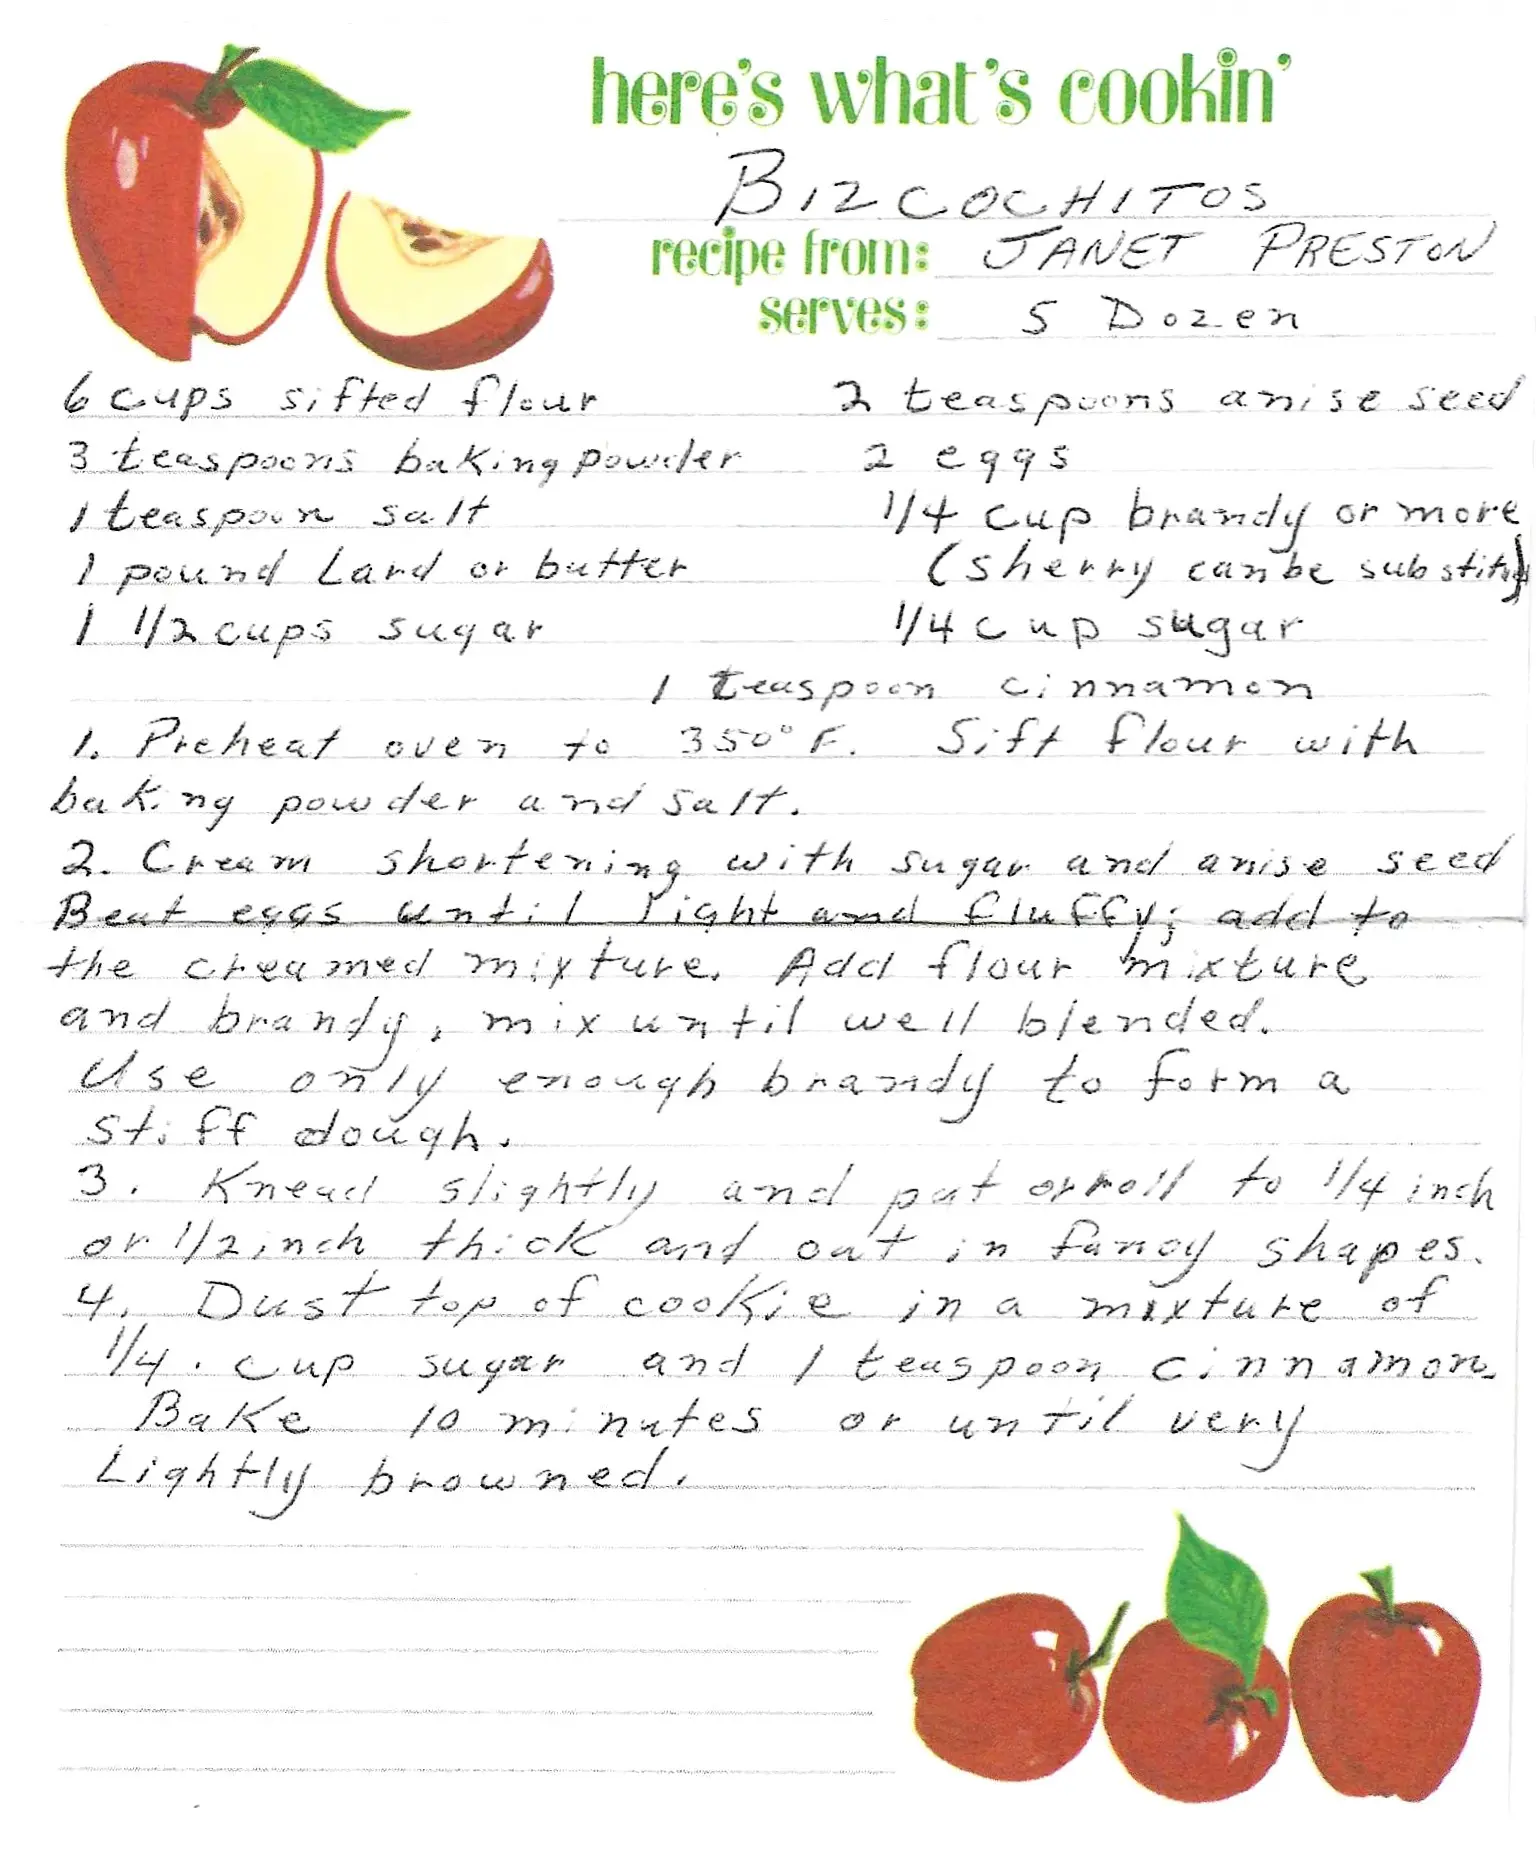 here's what's cookin'
BIZCOCHITOS
recipe from: JANET PRESTON
serves: 5 Dozen
6 cups sifted flour 2 teaspoons anise seed
3 teaspoons baking powder 2 eggs
1 teaspoon salt 1/4 cup brandy or more
1 pound Lard or butter (sherry can be substitud)
1 1/2 cups sugar 1/4 cup sugar
1 teaspoon cinnamon
1. Preheat oven to 350° F. Sift flour with
baking powder and salt.
2. Cream shortening with sugar and anise seed
Beat eggs until light and fluffy; add to
the creamed mixture. Add flour mixture
and brandy, mix until well blended.
Use only enough brandy to form a
stiff dough.
3. Knead slightly and pat or roll to 1/4 inch
or 1/2 inch thick and out in fancy shapes.
4. Dust top of cookie in a mixture of
1/4 . cup sugar and 1 teaspoon cinnamon
Bake 10 minutes or until very
Lightly browned.